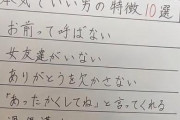 本気でいい男の特徴10選
お前って呼ばない
女友達がいない
ありがとうを欠かさない
「あったかくしてね」と言ってくれる